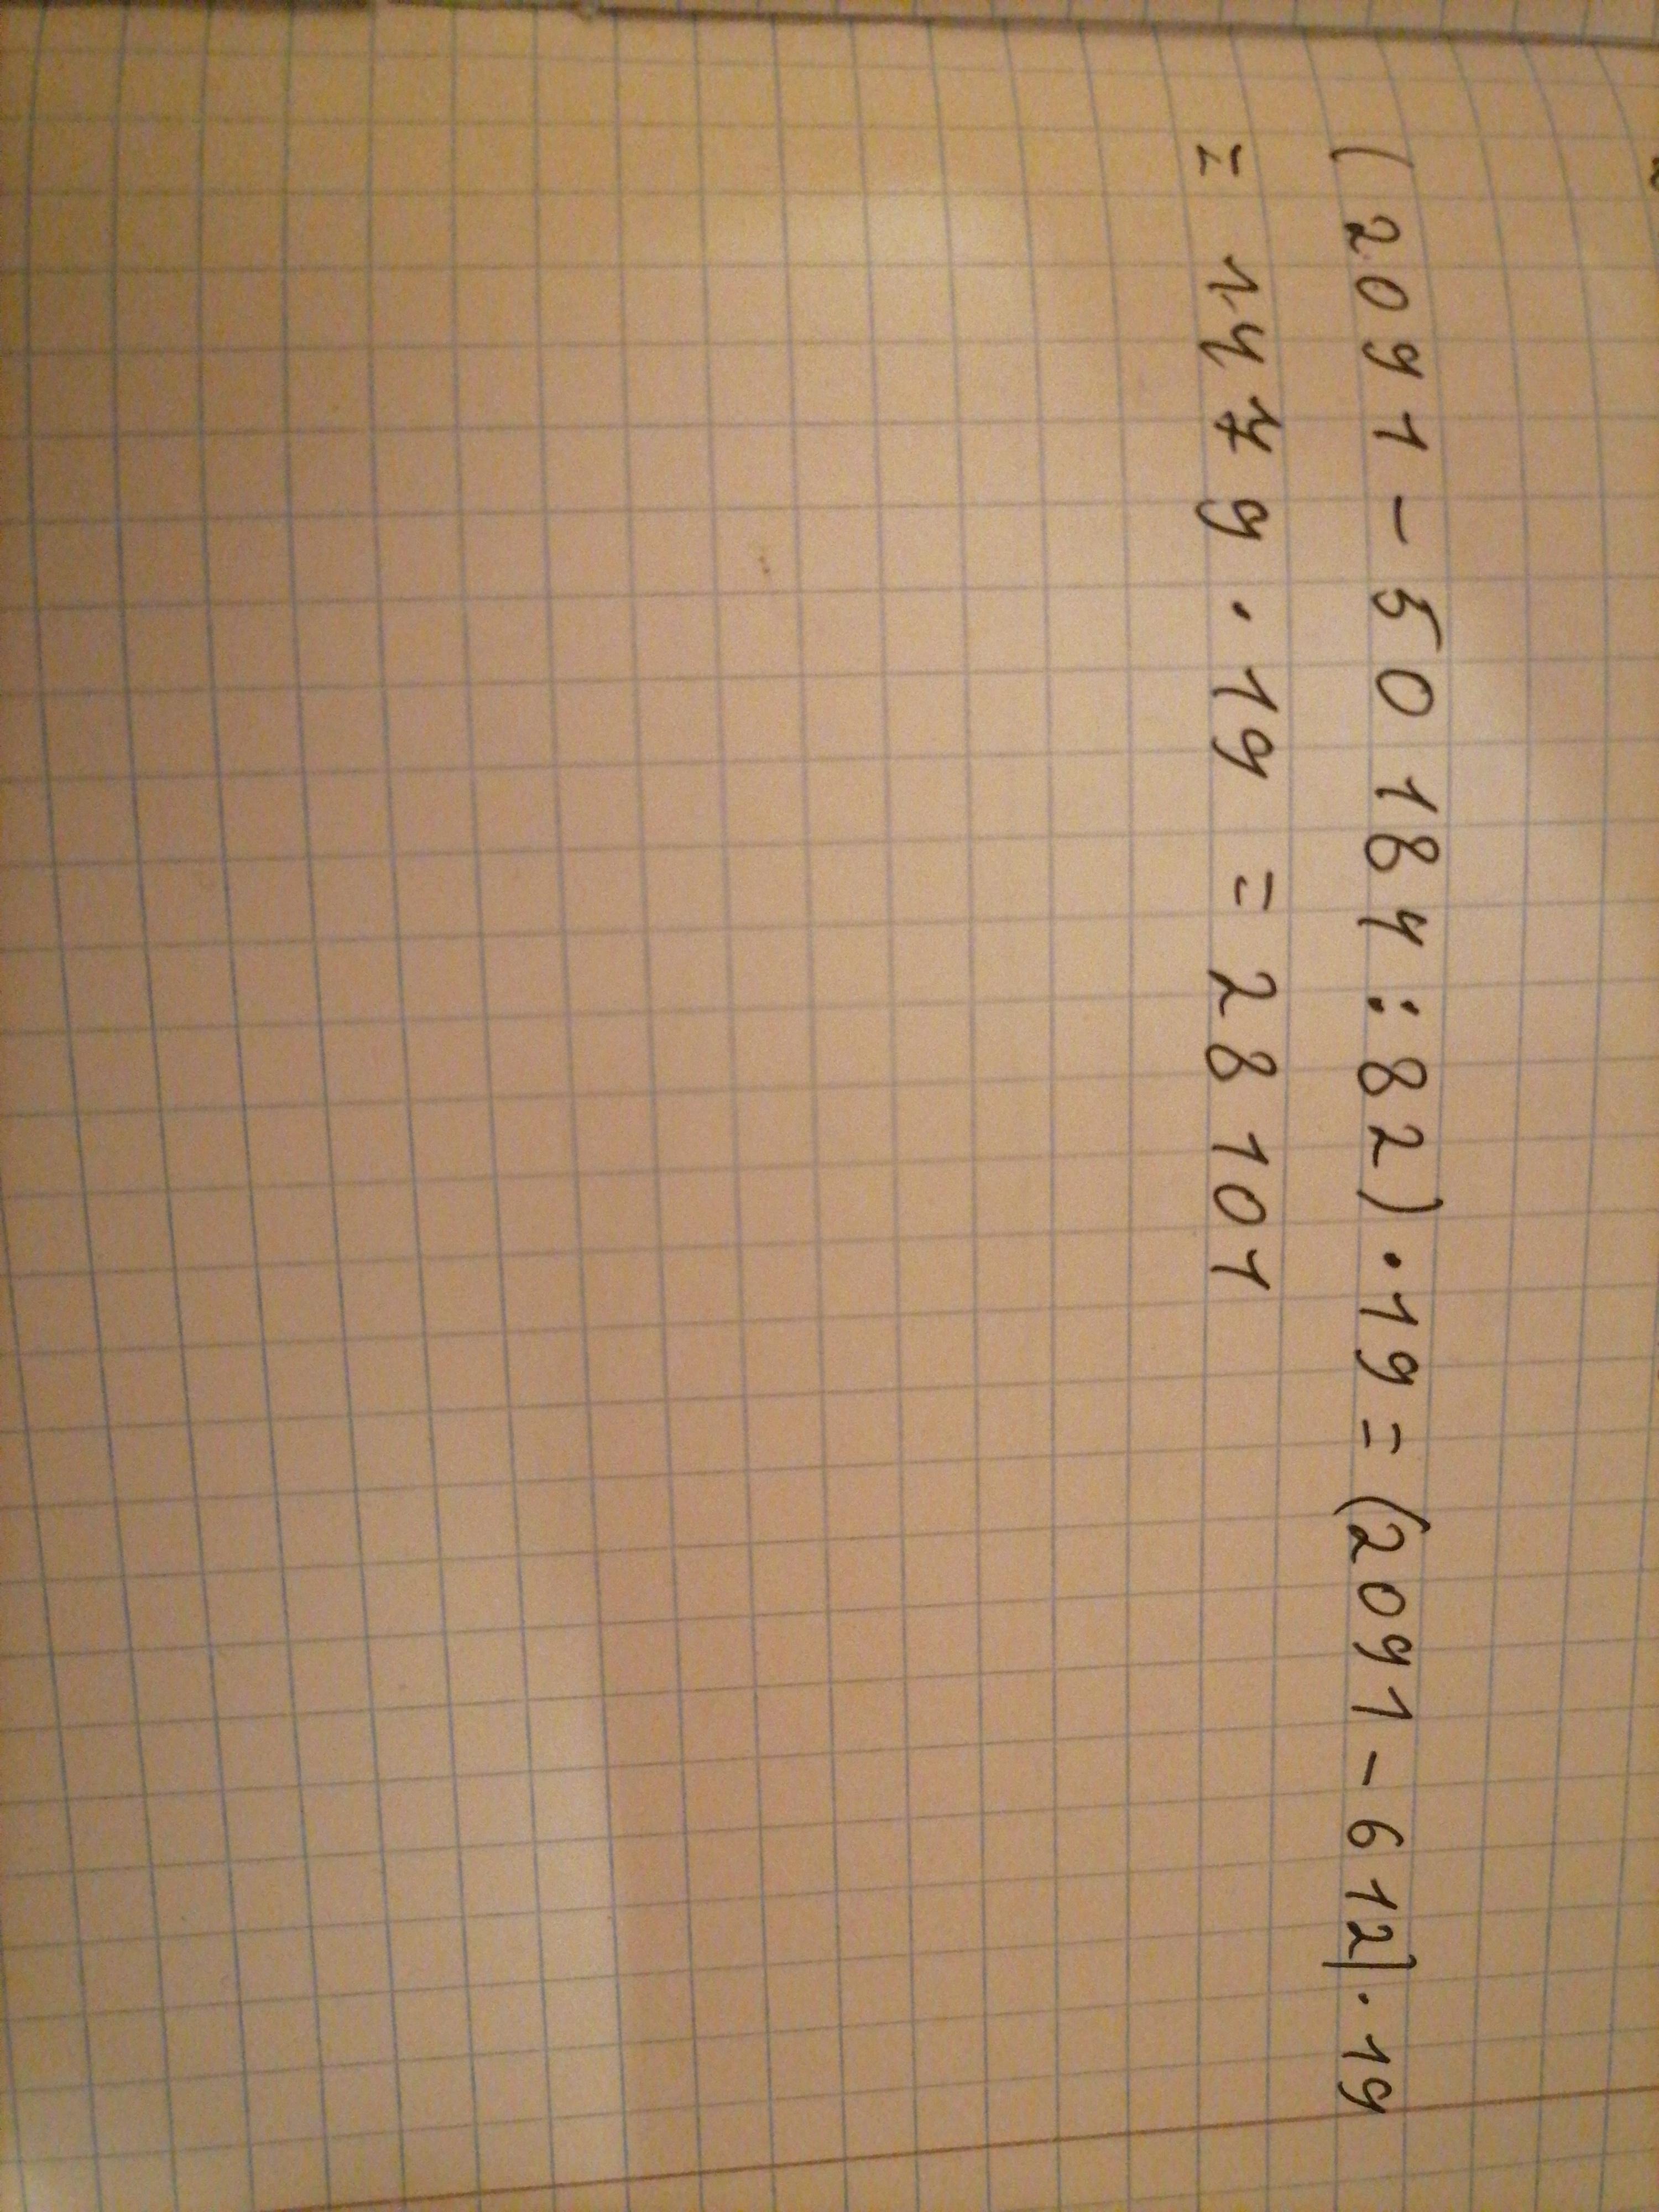 (2091-50184:82)·19=(2091-612)·19
=1479·19=28101